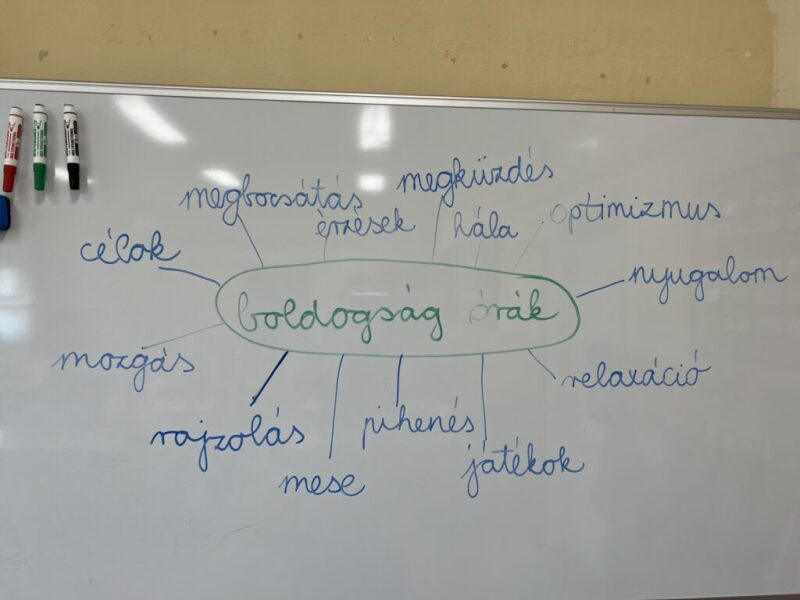 megbocsátás
érzések
megküzdés
hála
optimizmus
célok
nyugalom
boldogság órák
mozgás
relaxáció
rajzolás
pihenés
mese
játékok